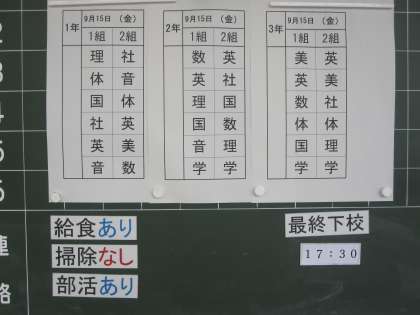 1年 9月15日 (金)
1組 2組
理 社
体 音
国 体
社 英
英 美
音 数
2年 9月15日 (金)
1組 2組
数 英
英 社
理 国
国 数
音 理
学 学
3年 9月15日 (金)
1組 2組
美 英
英 美
数 社
体 体
国 理
学 学
2
3
4
5
6
連
絡
給食あり
掃除なし
部活あり
最終下校
17:30